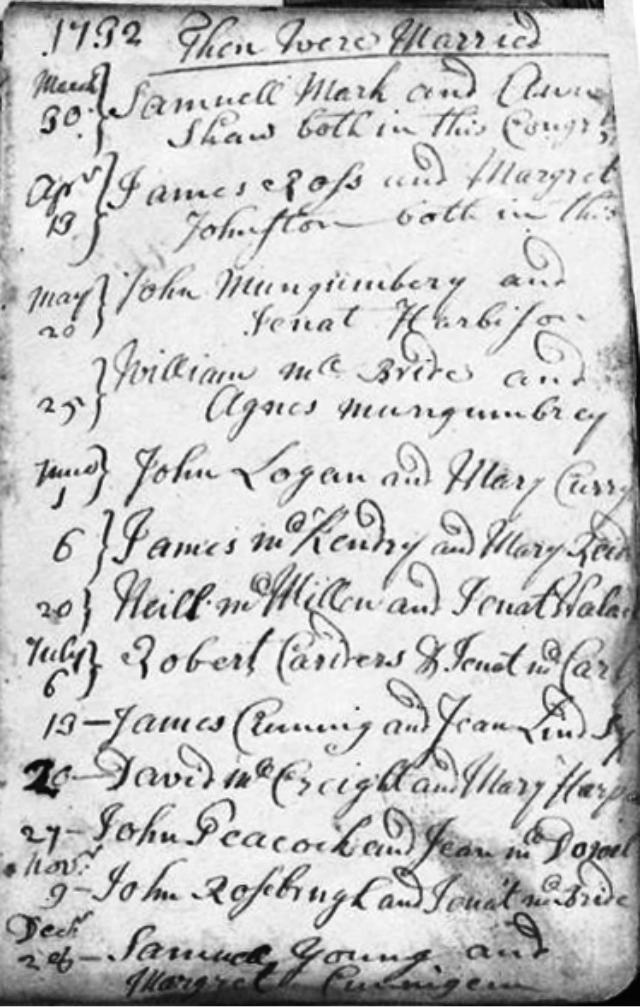 1732 Then Were Married
March 30 } Samuell Mark and
Shaw both in this Congr
Apr 13 } James Ross and Margret
Johnston both in this
May 20 } John Mungumbery and
Jenat Harbison
25 } William mc Bride and
Agnes mungumbrey
June 1 } John Logan and Mary Curry
6 } James mc Kendry and Mary Reid
20 } Neill mc Millen and Jenat
July 6 } Robert Carders & Jenat mc
13 – James Cunnig and Jean
20 – David mc Creight and Mary
27 – John Peacock and Jean mc
Novr
9 – John Rosebrugh and Jenat mc Bride
Decr
– Samuell Young and
Margret Cunnigem